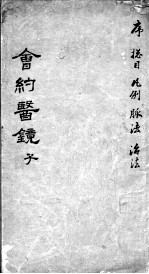 序 揔目 凡例 脉法 治法
會約醫鏡 子